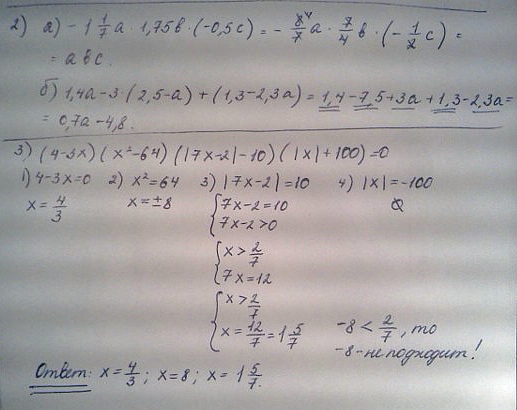 2) а) -1 1/7 a · 1,75 b · (-0,5 c) = - 8/7 a · 7/4 b · (- 1/2 c) =
= abc.
б) 1,4a-3·(2,5-a)+(1,3-2,3a)=1,4-7,5+3a+1,3-2,3a=
= 0,7a-4,8.
3) (4-3x)(x²-64)(|7x-2|-10)(|x|+100)=0
1) 4-3x=0 2) x²=64 3) |7x-2|=10 4) |x|=-100
x= 4/3 x=±8 { 7x-2=10 ∅
7x-2>0
{ x> 2/7
7x=12
{ x> 2/7
x= 12/7 =1 5/7 -8< 2/7, то
-8-не подходит!
Ответ: x= 4/3; x=8; x= 1 5/7.